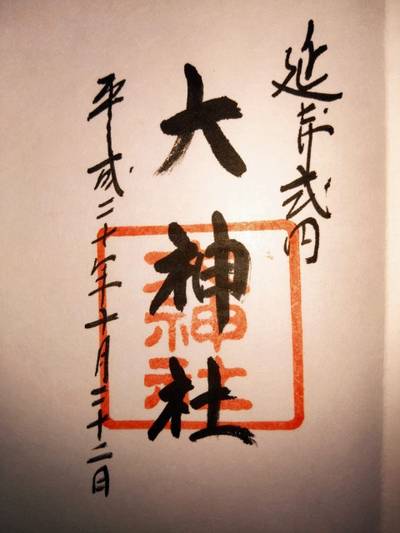 延喜式内
大神社
平成二十七年十月二十二日